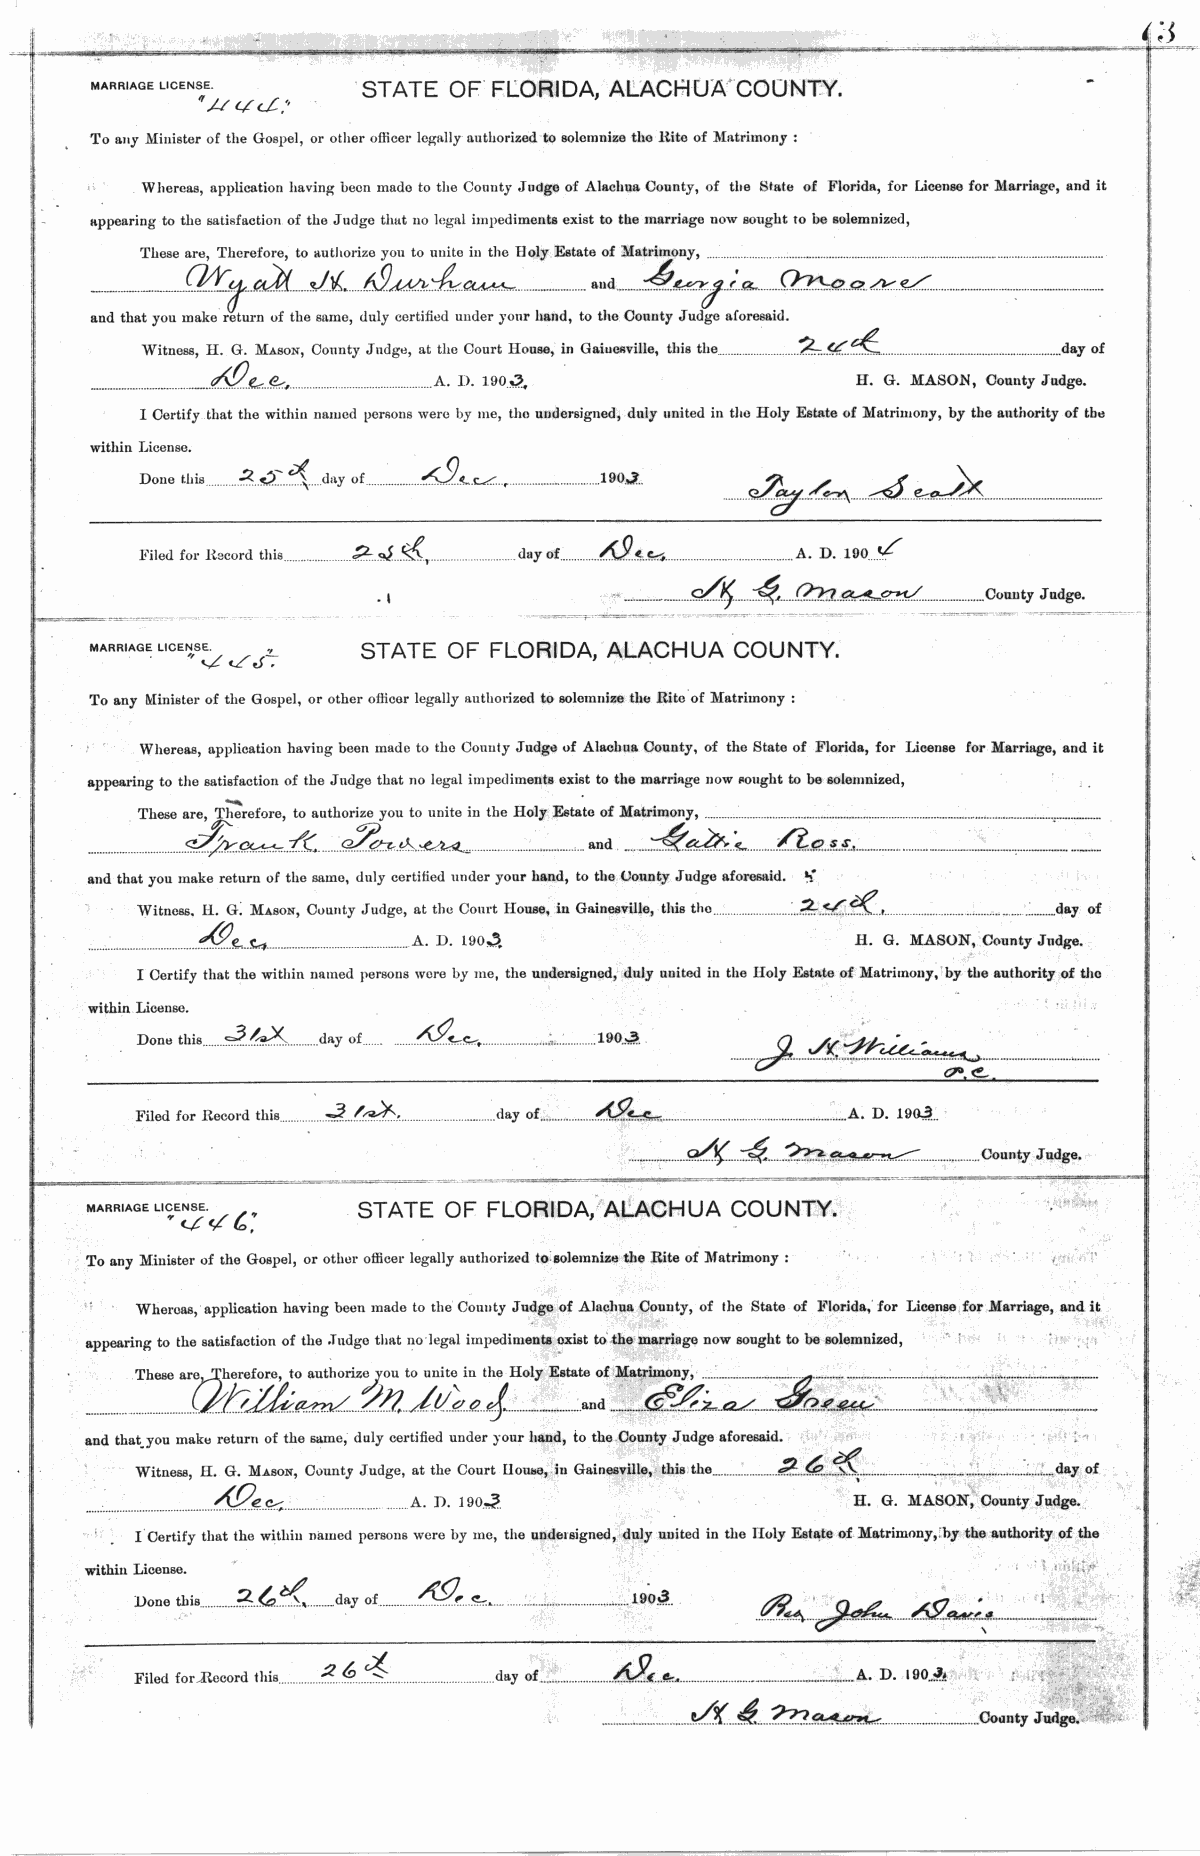 63
MARRIAGE LICENSE. STATE OF FLORIDA, ALACHUA COUNTY.
"444."
To any Minister of the Gospel, or other officer legally authorized to solemnize the Rite of Matrimony :
Whereas, application having been made to the County Judge of Alachua County, of the State of Florida, for License for Marriage, and it
appearing to the satisfaction of the Judge that no legal impediments exist to the marriage now sought to be solemnized,
These are, Therefore, to authorize you to unite in the Holy Estate of Matrimony,
Wyatt H. Durham and Georgia Moore
and that you make return of the same, duly certified under your hand, to the County Judge aforesaid.
Witness, H. G. MASON, County Judge, at the Court House, in Gainesville, this the 24th day of
Dec. A. D. 1903. H. G. MASON, County Judge.
I Certify that the within named persons were by me, the undersigned, duly united in the Holy Estate of Matrimony, by the authority of the
within License.
Done this 25th day of Dec. 1903 Taylor Scott
Filed for Record this 25th, day of Dec. A. D. 1904
H G. Mason County Judge.
MARRIAGE LICENSE. STATE OF FLORIDA, ALACHUA COUNTY.
"445."
To any Minister of the Gospel, or other officer legally authorized to solemnize the Rite of Matrimony :
Whereas, application having been made to the County Judge of Alachua County, of the State of Florida, for License for Marriage, and it
appearing to the satisfaction of the Judge that no legal impediments exist to the marriage now sought to be solemnized,
These are, Therefore, to authorize you to unite in the Holy Estate of Matrimony,
Frank Powers and Gattie Ross.
and that you make return of the same, duly certified under your hand, to the County Judge aforesaid.
Witness, H. G. MASON, County Judge, at the Court House, in Gainesville, this the 24th. day of
Dec. A. D. 1903. H. G. MASON, County Judge.
I Certify that the within named persons were by me, the undersigned, duly united in the Holy Estate of Matrimony, by the authority of the
within License.
Done this 31st day of Dec. 1903 J. H. Williams
P.C.
Filed for Record this 31st. day of Dec A. D. 1903
H G. Mason County Judge.
MARRIAGE LICENSE. STATE OF FLORIDA, ALACHUA COUNTY.
"446."
To any Minister of the Gospel, or other officer legally authorized to solemnize the Rite of Matrimony :
Whereas, application having been made to the County Judge of Alachua County, of the State of Florida, for License for Marriage, and it
appearing to the satisfaction of the Judge that no legal impediments exist to the marriage now sought to be solemnized,
These are, Therefore, to authorize you to unite in the Holy Estate of Matrimony,
William M. Wood. and Eliza Green
and that you make return of the same, duly certified under your hand, to the County Judge aforesaid.
Witness, H. G. MASON, County Judge, at the Court House, in Gainesville, this the 26th day of
Dec. A. D. 1903 H. G. MASON, County Judge.
I Certify that the within named persons were by me, the undersigned, duly united in the Holy Estate of Matrimony, by the authority of the
within License.
Done this 26th. day of Dec. 1903 Rev John Davis
Filed for Record this 26th day of Dec. A. D. 1903.
H G. Mason County Judge.